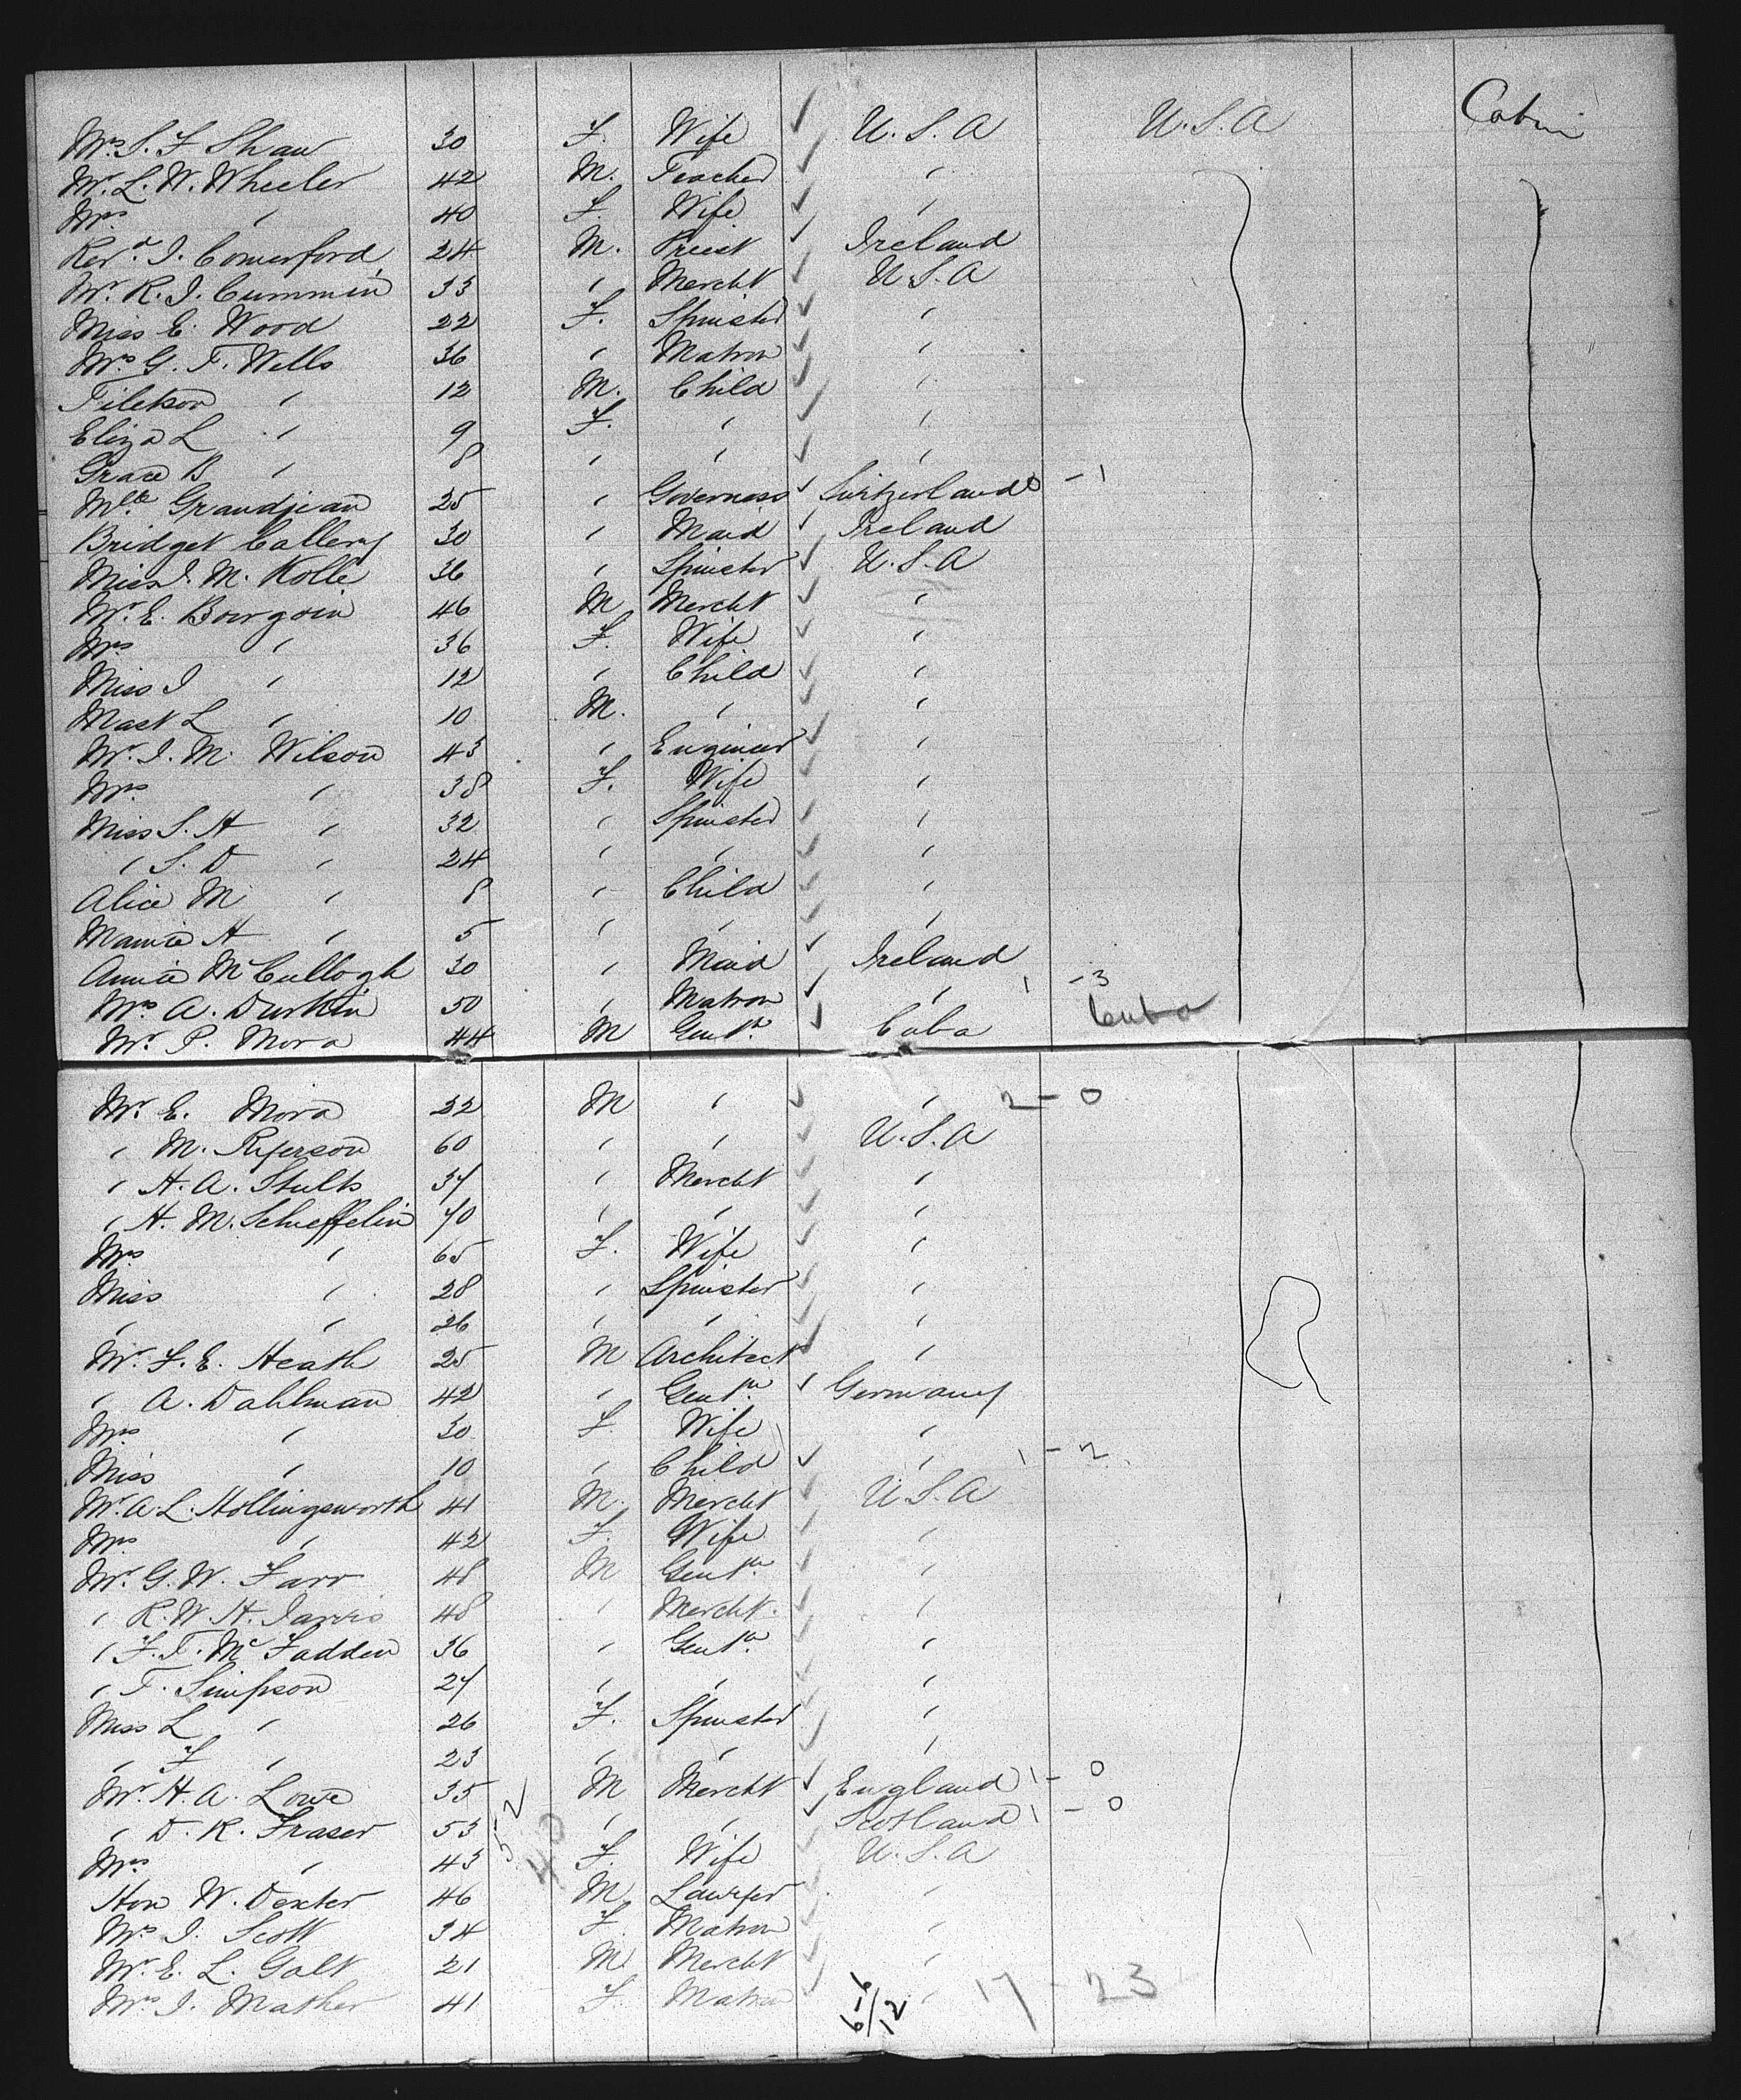 Mrs. S. F Shaw 30 F. Wife ✓ U. S. A U. S. A Cabin
Mr. L. W. Wheeler 42 M. Teacher ✓ "
Mrs " 40 F. Wife ✓ "
Revd. J. Comerford 24 M. Priest ✓ Ireland
Mr. R. J. Cummin 33 " Mercht ✓ U. S. A
Miss E. Wood 22 F. Spinster ✓ "
Mrs G. F. Wells 36 " Matron ✓ "
Tileston " 12 M. Child ✓ "
Eliza L " 9 F. " ✓ "
Grace B " 8 " " ✓ "
Mlle Grandjean 25 " Governess ✓ Switzerland - 1
Bridget Callery 30 " Maid ✓ Ireland
Miss J. M. Kolle 36 " Spinster ✓ U. S. A
Mr. E. Bourgoin 46 M Mercht ✓ "
Mrs " 36 F. Wife ✓ "
Miss J " 12 " Child ✓ "
Mast L " 10 M. " ✓ "
Mr. J. M. Wilson 43 " Engineer ✓ "
Mrs. " 38 F. Wife ✓ "
Miss S. H " 32 " Spinster ✓ "
" S. D " 24 " " ✓ "
Alice M " 8 " Child ✓ "
Mamie H " 5 " " ✓ "
Annie McCullogh 30 " Maid ✓ Ireland
Mrs A. Durkin 50 " Matron ✓ " 1 - 3
Mr P. Mora 44 M Gentn. ✓ Cuba Cuba
Mr. E. Mora 32 M " ✓ " 2 - 0
" M. 60 " " ✓ U. S. A
" H. A. Stults 37 " Mercht ✓ "
" H. M. Schieffelin 70 " " ✓ "
Mrs " 65 F. Wife ✓ "
Miss " 28 " Spinster ✓ "
" " 26 " " ✓ "
Mr. F. E. Heath 25 M Architect ✓ "
" A. Dahlman 42 " Gentn. ✓ Germany
Mrs " 30 F. Wife "
Miss " 10 " Child ✓ " 1 - 2
Mr A. L. Hollingsworth 41 M. Mercht ✓ U. S. A
Mrs " 42 F. Wife ✓ "
Mr. G. W. Farr 48 M Gentn. ✓ "
" R. W. H. Jarvis 48 " Mercht. ✓ "
" F. T. McFadden 36 " Gentn. ✓ "
" T. Simpson 27 " " ✓ "
Miss L " 26 F. Spinster ✓ "
" F " 23 " " ✓ "
Mr. H. A. Lowe 35 M Mercht ✓ England 1 - 0
" D. R. Fraser 53 " " ✓ Scotland 1 - 0
Mrs " 43 F. Wife ✓ U. S. A
Hon W. Dexter 46 M Lawyer ✓ "
Mrs J. Scott 34 F. Matron ✓ "
Mr. E. L. Galt 21 M Mercht ✓ "
Mrs J. Mather 41 F Matron ✓ " 17 - 23
6-6/12